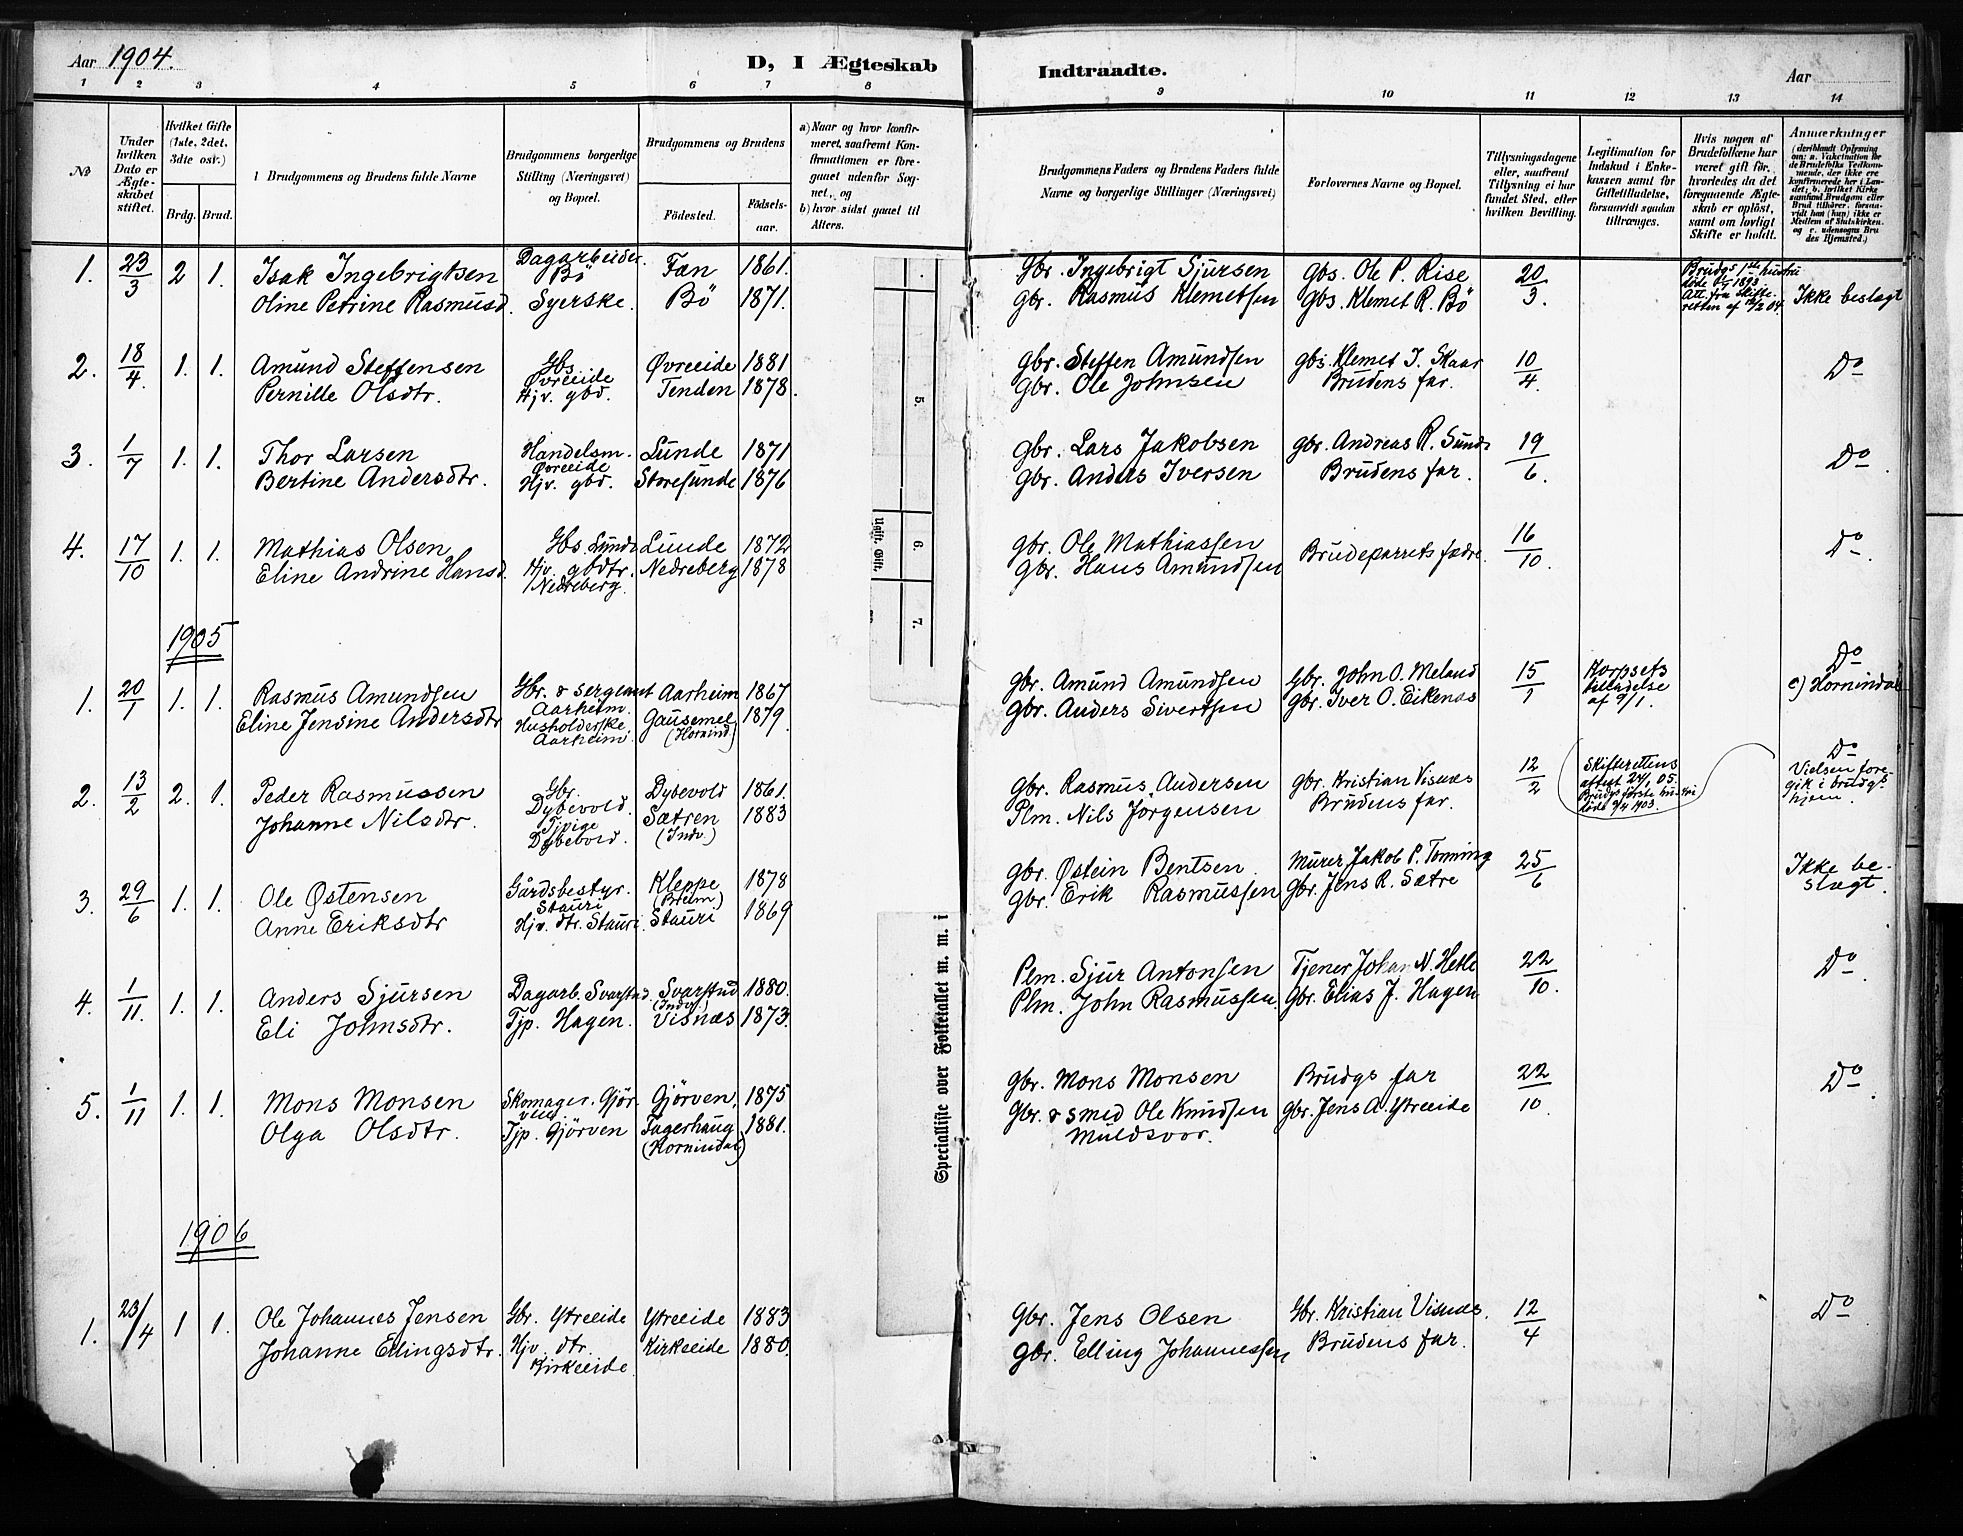 Aar 1904.
D, I Ægteskab Indtraadte.
Aar
1 2 3 4 5 6 7 8 9 10 11 12 13 14
No
Under hvilken Dato er Ægteskabet stiftet.
Hvilket Gifte (1ste, 2det, 3die osv.)
Brdg. Brud.
Brudgommens og Brudens fulde Navne
Brudgommens borgerlige Stilling (Næringsvei) og Bopæl.
Brudgommens og Brudens
Fødested.
Fødselsaar.
a) Naar og hvor konfirmeret, saafremt Konfirmationen er foregaaet udenfor Sognet, og
b) hvor sidst gaaet til Alters.
Brudgommens Faders og Brudens Faders fulde Navne og borgerlige Stillinger (Næringsvei)
Forlovernes Navne og Bopæl.
Tillysningsdagene eller, saafremt Tillysning ei har fundet Sted, efter hvilken Bevilling.
Legitimation for Indskud i Enkekassen samt for Giftetilladelse, forsaavidt saadan tiltrænges.
Hvis nogen af Brudefolkene har været gift før, hvorledes da det foregaaende Ægteskab er opløst, samt om lovligt Skifte er holdt.
Anmærkninger (deriblandt Oplysning om: a. Vakcination for de Brudefolks Vedkommende, der ikke ere konfirmerede her i Landet; b. hvilket Kirkesamfund Brudgom eller Brud tilhører, forsaavidt han (hun) ikke er Medlem af Statskirken, og c. udensogns Brudes Hjemsted.)
1. 23/3 2 1. Isak Ingebrigtsen Dagarbeider Bö Fæn 1861. Gbr. Ingebrigt Sjursen Gbs. Ole P. Rise 20/3. Brudgs 1ste hustru døde 1893 Att. fra Skifteretten af 04. Ikke beslegt
Oline Petrine Rasmusd. Syerske. Bö 1871. Gbr. Rasmus Klemetsen Gbs. Klemet R. Bö
2. 18/4. 1. 1. Amund Steffensen Gbs. Øvreeide Øvreeide 1881 Gbr. Steffen Amundsen Gbs. Klemet J. Skaar 10/4. Do
Pernille Olsdtr. Hjv. gbd. Tenden 1878. Gbr. Ole Johnsen Brudens far.
3. 1/7 1. 1. Thor Larsen Handelsm. Øvreeide Lunde 1871 Gbr. Lars Jakobsen Gbr. Andreas R. Sunde 19/6. Do.
Bertine Andersdtr. Hjv. gbd. Storesunde 1876 Gbr. Anders Iversen Brudens far.
4. 17/10 1. 1. Mathias Olsen Gbs. Lunde Lunde 1872 Gbr. Ole Mathiassen Brudeparrets fædre. 16/10. Do.
Eline Andrine Hansd. Hjv. gbdtr. Nedreberg. Nedreberg 1878 Gbr. Hans Amundsen
5. 6. 7.
Ugift. Gift.
1905
1. 20/1 1. 1. Rasmus Amundsen Gbr. & sergeant Aarheim. Aarheim 1867 Gbr. Amund Amundsen Gbr. John O. Meland 15/1 Korpsets tilladelse af 9/1. Do c) Hornindal
Eline Jensine Andersdtr Husholderske Aarheim. Gausemel (Hornind.) 1879. Gbr. Anders Sivertsen Gbr. Iver O. Eikenæs
2. 13/2 2. 1. Peder Rasmussen Gbr. Dybevold. Dybevold 1861. Gbr. Rasmus Andersen Gbr. Kristian Visnæs 12/2 Skifterettens attest 24/1 05. Brudgs første hustru døde 1903. Do Vielsen foregik i brudgs hjem.
Johanne Nilsdtr. Tjpige Dybevold. Sætren (Indv.) 1883 Plm. Nils Jorgensen Brudens far.
3. 29/6 1. 1. Ole Østensen Gårdsbestyr. Stauri Kleppe (Breim) 1878 Gbr. Østein Bentsen Murer Jakob P. Tomming 25/6 Ikke beslægt.
Anne Eriksdtr Hjv. dtr. Stauri. Stauri 1869 Gbr. Erik Rasmussen Gbr. Jens R. Sætre
4. 1/11. 1. 1. Anders Sjursen Dagarb. Svarstad. Svarstad (Indv.) 1880. Plm. Sjur Antonsen Tjener Johan N. Hetle 22/10. Do.
Eli Johnsdtr. Tjp. Hagen. Visnæs 1873. Plm. John Rasmussen Gbr. Elias J. Hagen
5. 1/11 1. 1. Mons Monsen Skomager. Gjörven Gjörven. 1875 Gbr. Mons Monsen Brudgs far 22/10. Do
Olga Olsdtr. Tjp. Gjörven Fagerhaug (Hornindal) 1881. Gbr. & smed Ole Knudsen Muldsvor. Gbr. Jens A. Ytreeide
Specialliste over Folketallet m. m. i
1906
1. 23/4 1 1. Ole Johannes Jensen Gbr. Ytreeide Ytreeide 1883 Gbr. Jens Olsen Gbr. Kristian Visnæs. 12/4 Do
Johanne Ellingsdtr. Hjv. dtr. Kirkeeide Kirkeeide 1880. Gbr. Elling Johannessen Brudens far.